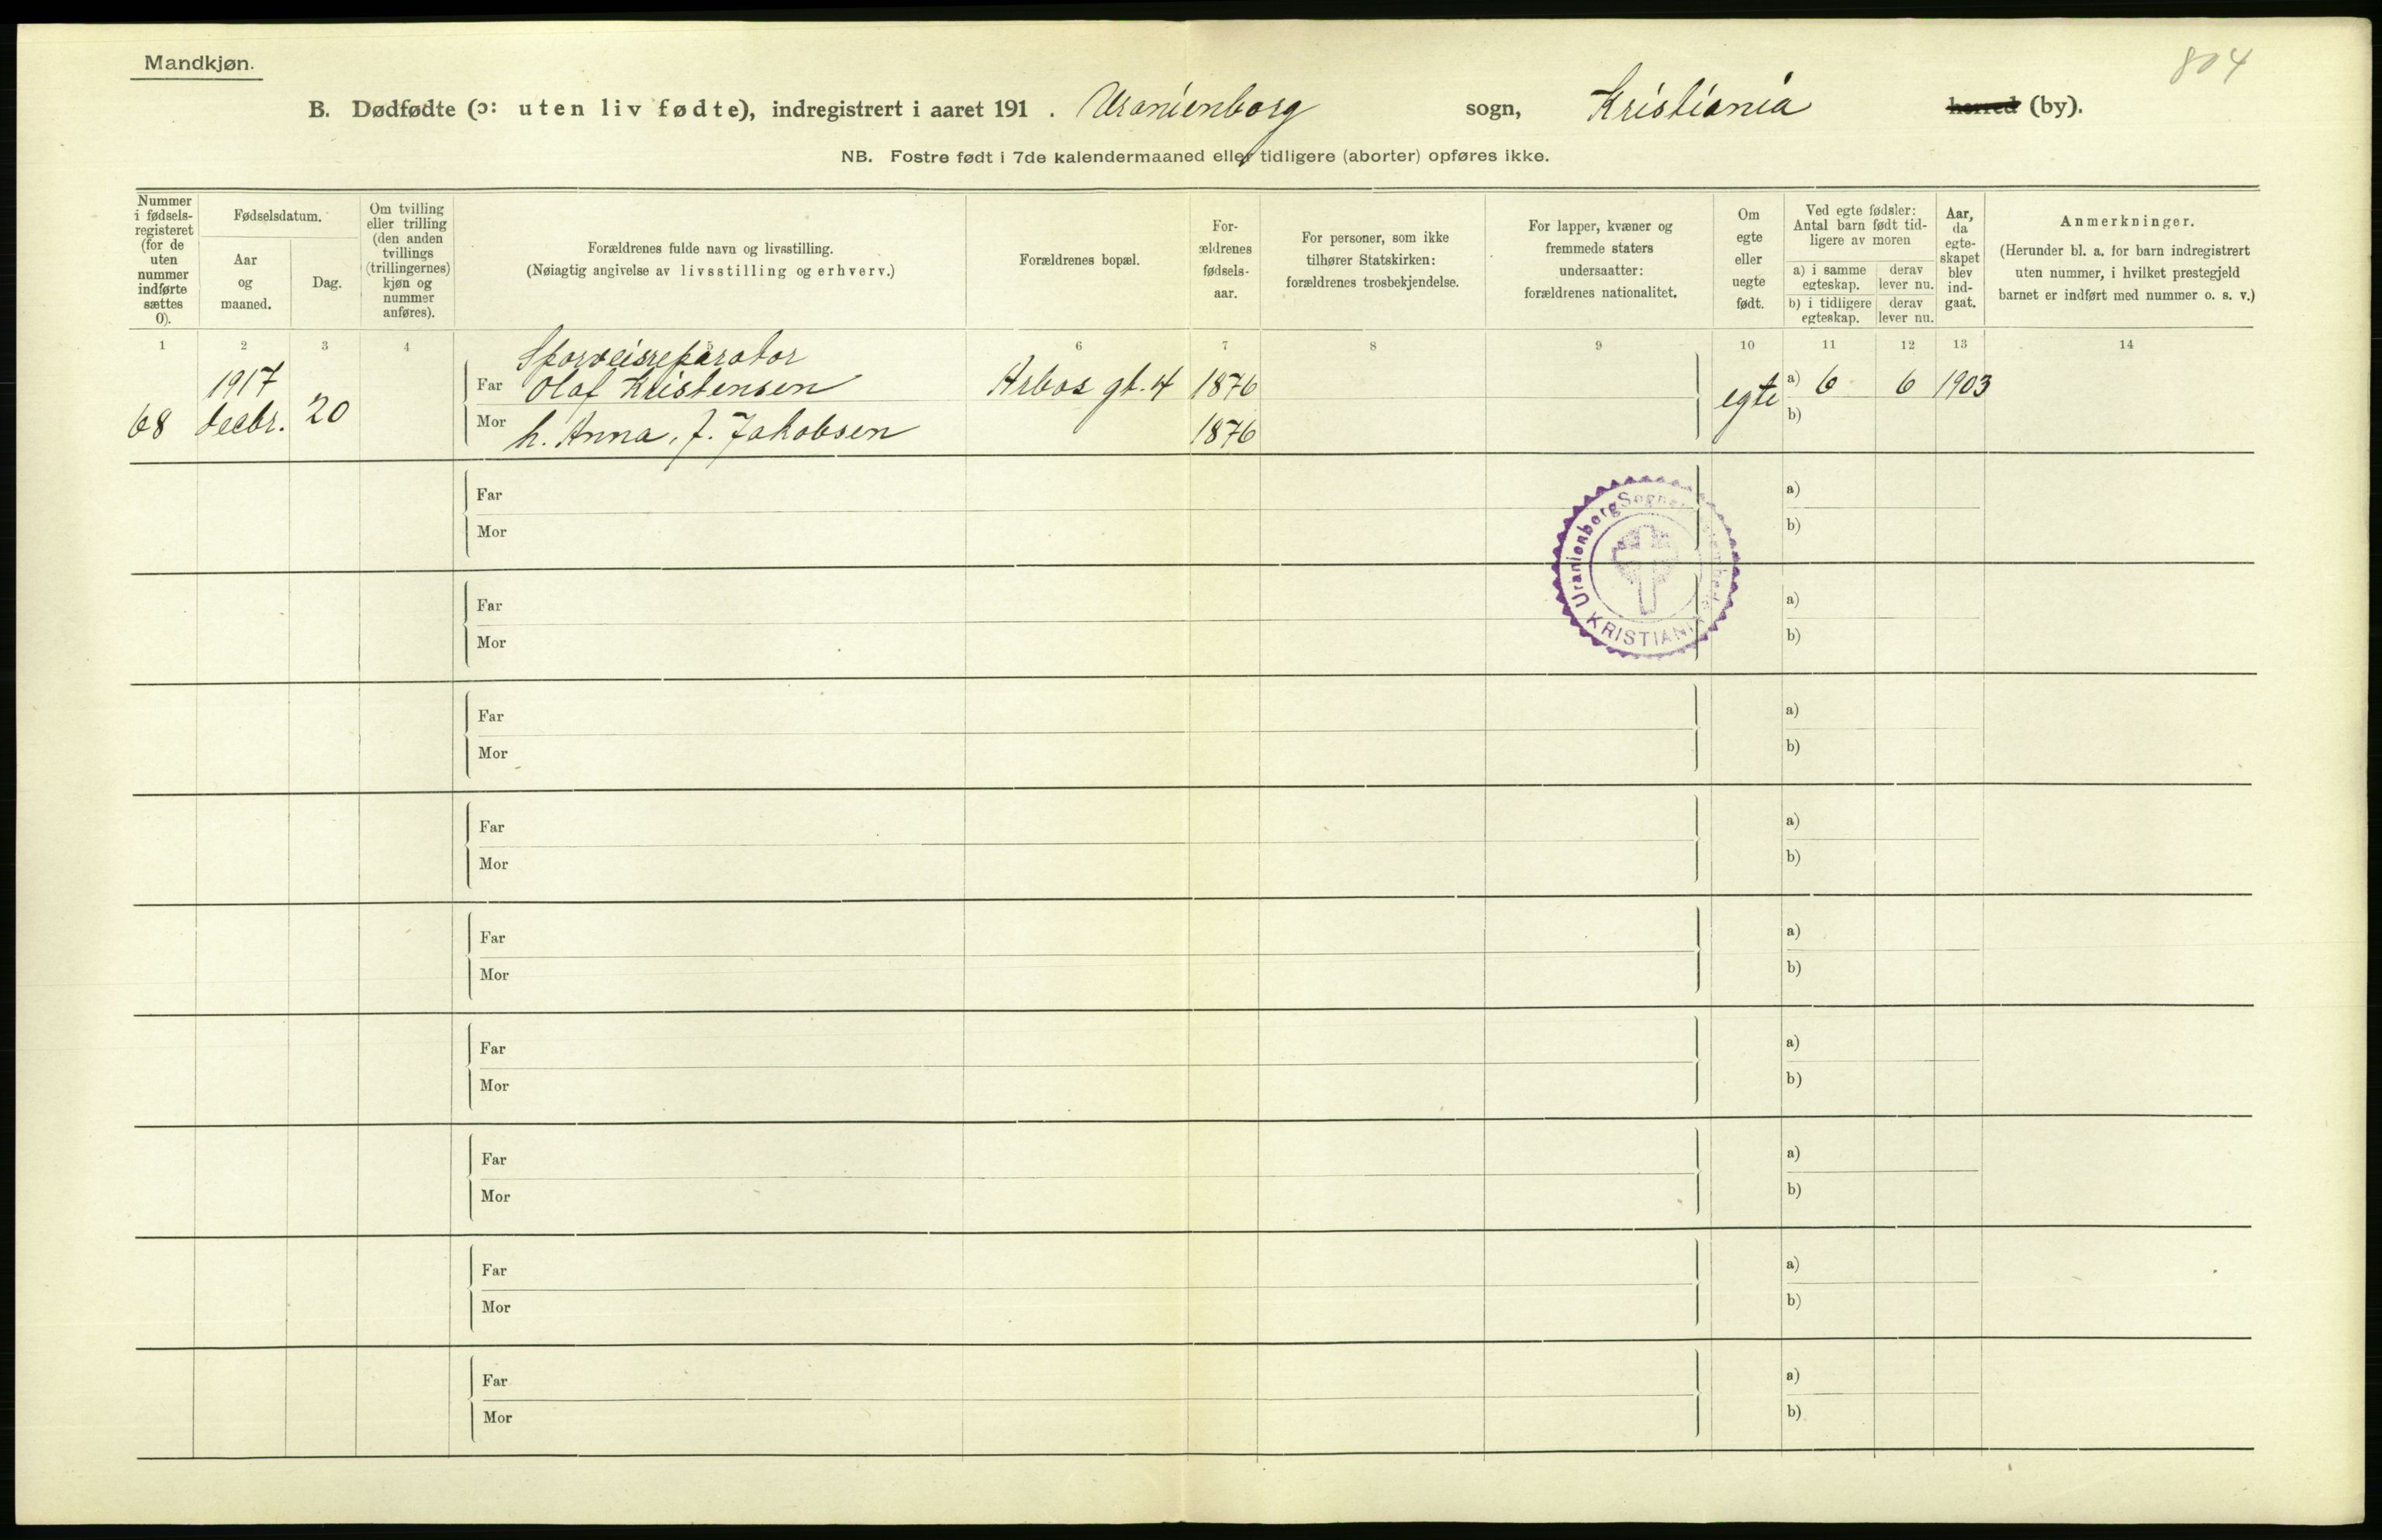 Mandkjøn.
804
B. Dødfødte (ɔ: uten liv fødte), indregistrert i aaret 191 . Uranienborg sogn, Kristiania herred (by).
NB. Fostre født i 7de kalendermaaned eller tidligere (aborter) opføres ikke.
Nummer i fødsels-registeret (for de uten nummer indførte sættes 0).
Fødselsdatum.
Aar og maaned.
Dag.
Om tvilling eller trilling (den anden tvillings (trillingernes) kjøn og nummer anføres).
Forældrenes fulde navn og livsstilling.
(Nøiagtig angivelse av livsstilling og erhverv.)
Forældrenes bopæl.
For-ældrenes fødsels-aar.
For personer, som ikke tilhører Statskirken: forældrenes trosbekjendelse.
For lapper, kvæner og fremmede staters undersaatter: forældrenes nationalitet.
Om egte eller uegte født.
Ved egte fødsler: Antal barn født tid-ligere av moren
a) i samme egteskap.
derav lever nu.
b) i tidligere egteskap.
derav lever nu.
Aar, da egte-skapet blev ind-gaat.
Anmerkninger.
(Herunder bl. a. for barn indregistrert uten nummer, i hvilket prestegjeld barnet er indført med nummer o. s. v.)
1 2 3 4 5 6 7 8 9 10 11 12 13 14
Sporveisreparatør
1917 Far Olaf Kristensen Arbos gt. 4 1876 egte a) 6 6 1903
68 decbr. 20 Mor h. Anna, f. Jakobsen 1876 b)
Far a)
Mor b)
Uranienborg Sogne
KRISTIANIA
Far a)
Mor b)
Far a)
Mor b)
Far a)
Mor b)
Far a)
Mor b)
Far a)
Mor b)
Far a)
Mor b)
Far a)
Mor b)
Far a)
Mor b)